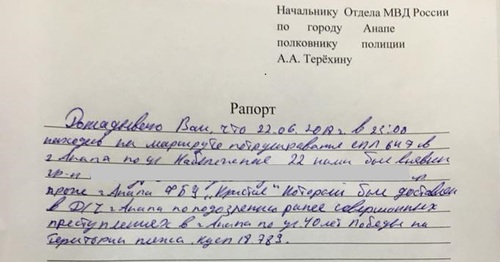 Начальнику Отдела МВД России
по городу Анапе
полковнику полиции
А.А. Терёхину
Рапорт
Докладываю Вам, что 22.06.2017г в 23:00
находясь на маршруте патрулирования
г Анапа по ул Набережная 22 нами был выявлен
гр-н
прож г Анапа ФБУ „Кристал" Который был доставлен
в Д/Ч г Анапа по подозрению ранее совершенных
преступлениях в г Анапа по ул 40 лет Победы на
территории пляжа. кусп 18783.